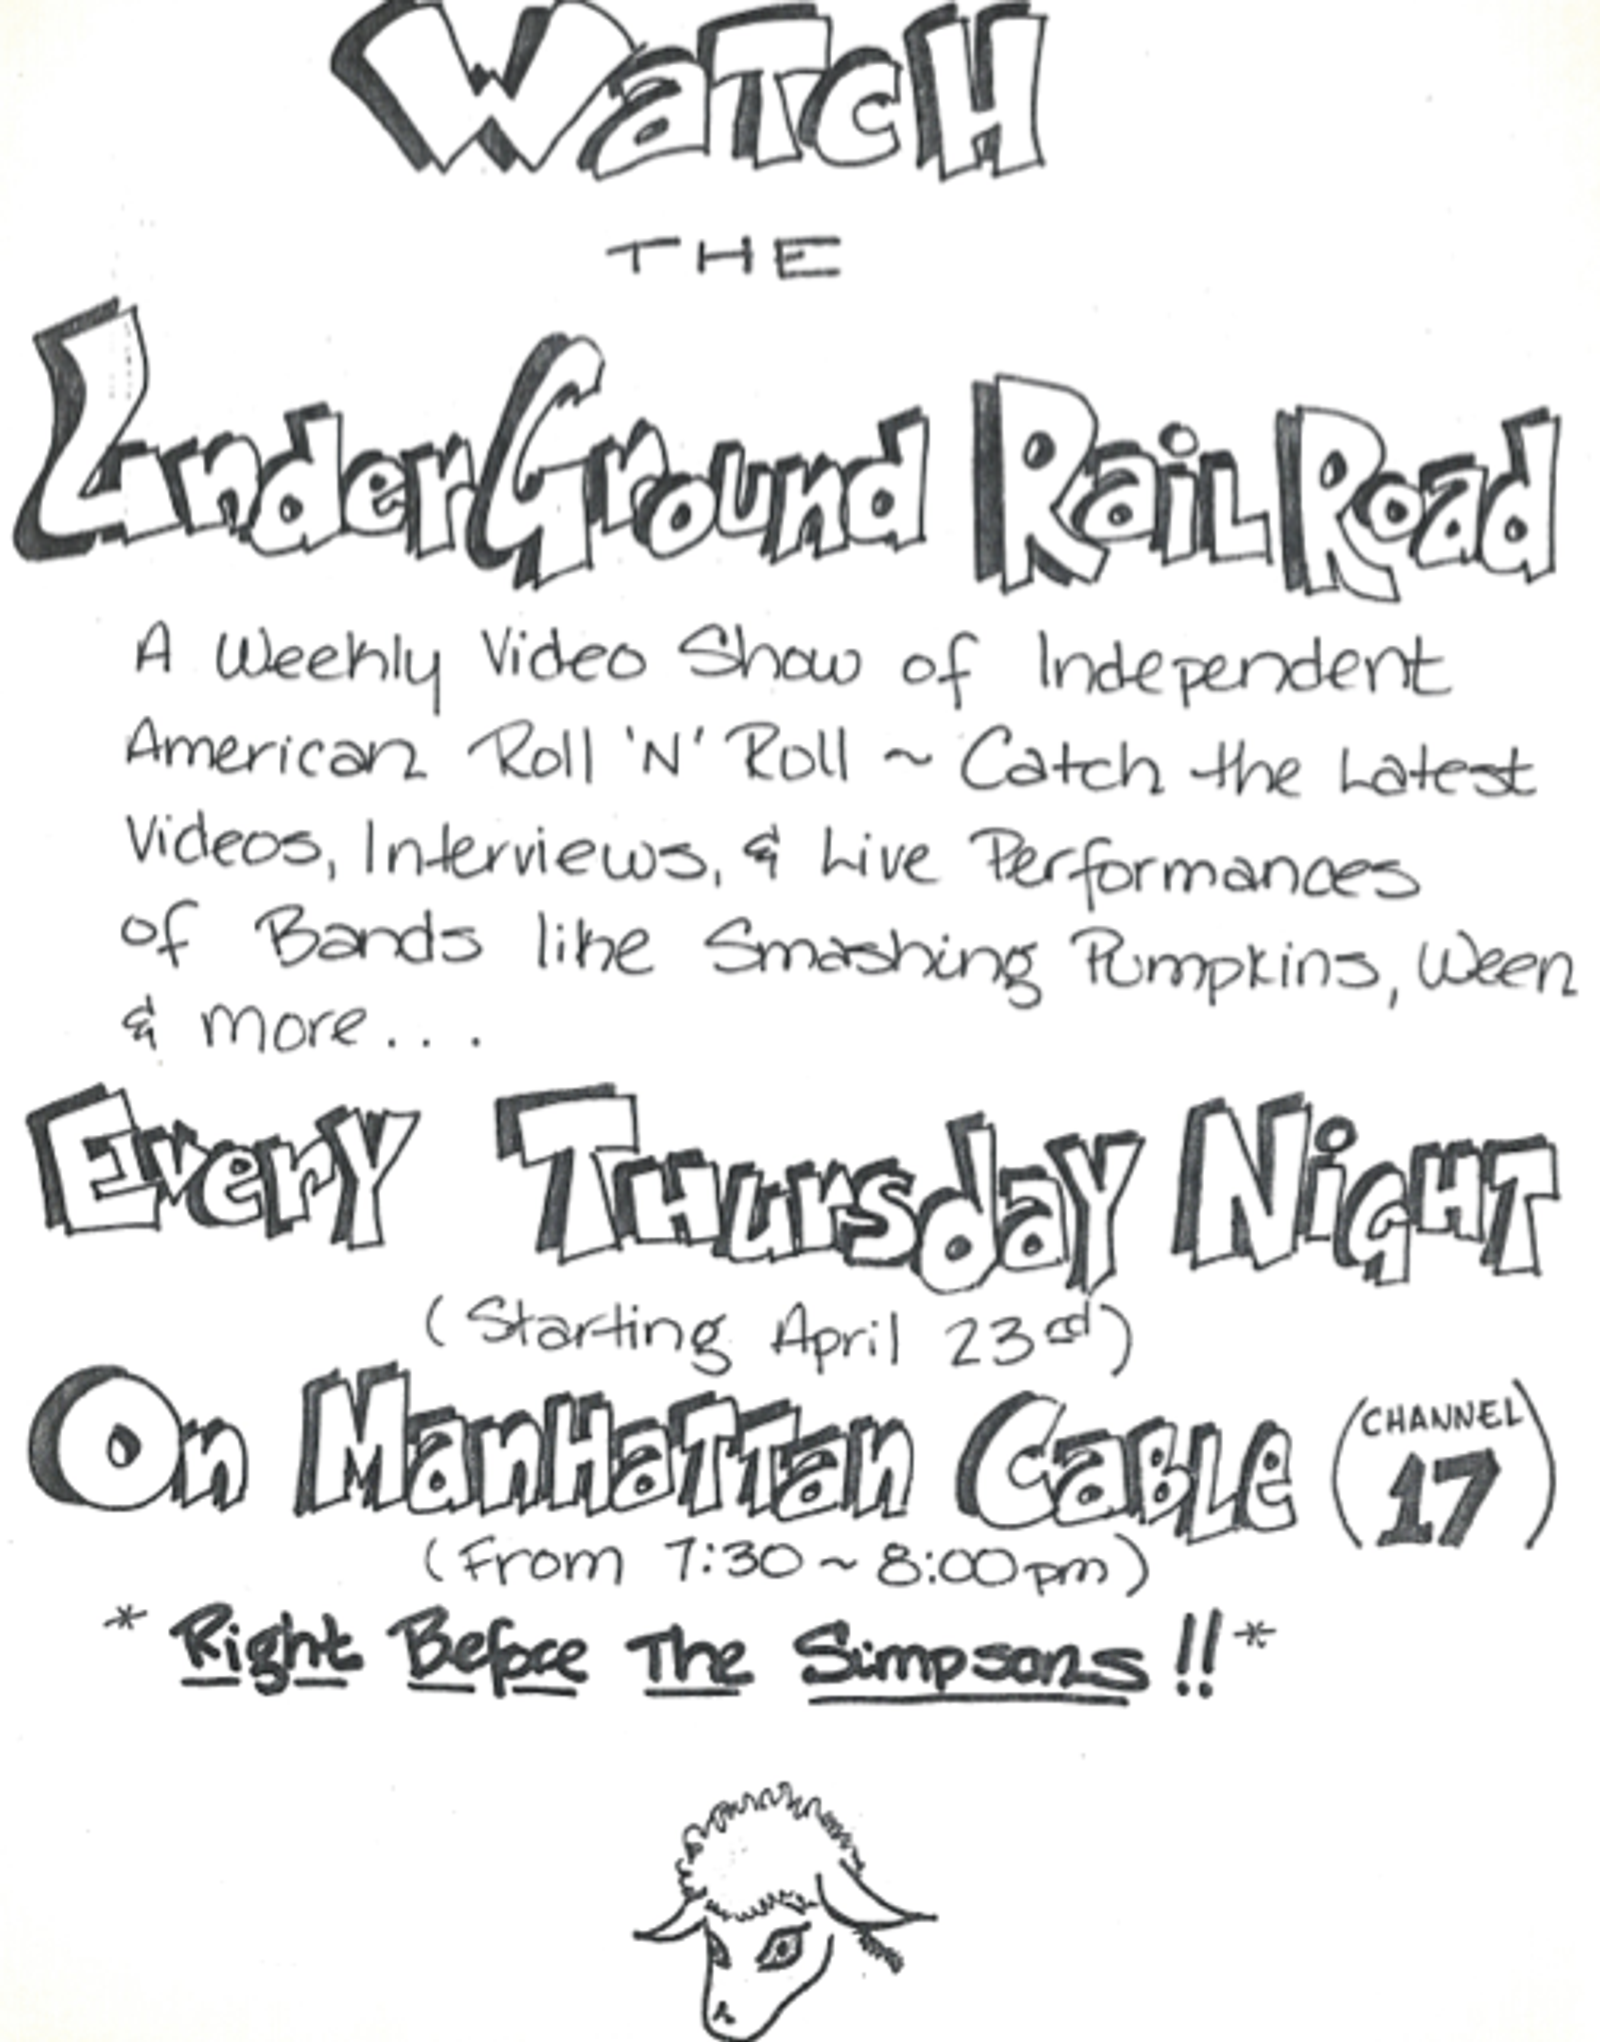 WaTcH
THE
UnderGround RaiLRoad
A Weekly Video Show of Independent
American Roll 'N' Roll ~ Catch the Latest
Videos, Interviews, & Live Performances
of Bands like Smashing Pumpkins, Ween
& more...
EverY THursdaY NiGHT
(Starting April 23rd)
On ManHaTTan CaBLe (CHANNEL 17)
(From 7:30 ~ 8:00pm)
* Right Before The Simpsons!! *